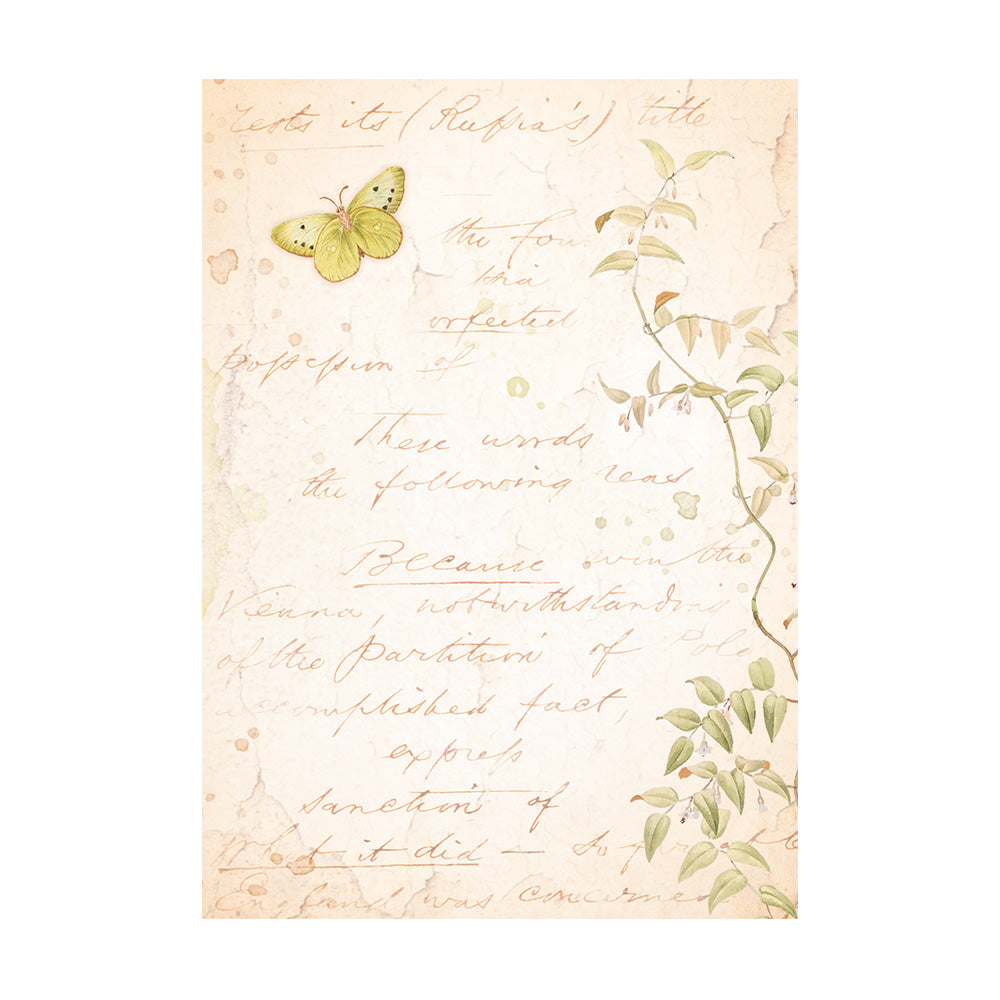 rests its (Russia's) title
the fou
sia
erfected
possession of
These words
the following reas
Because even the
Vienna, notwithstanding
of the partition of Pola
accomplished fact,
express
sanction of
what it did — so far as
England was concerned